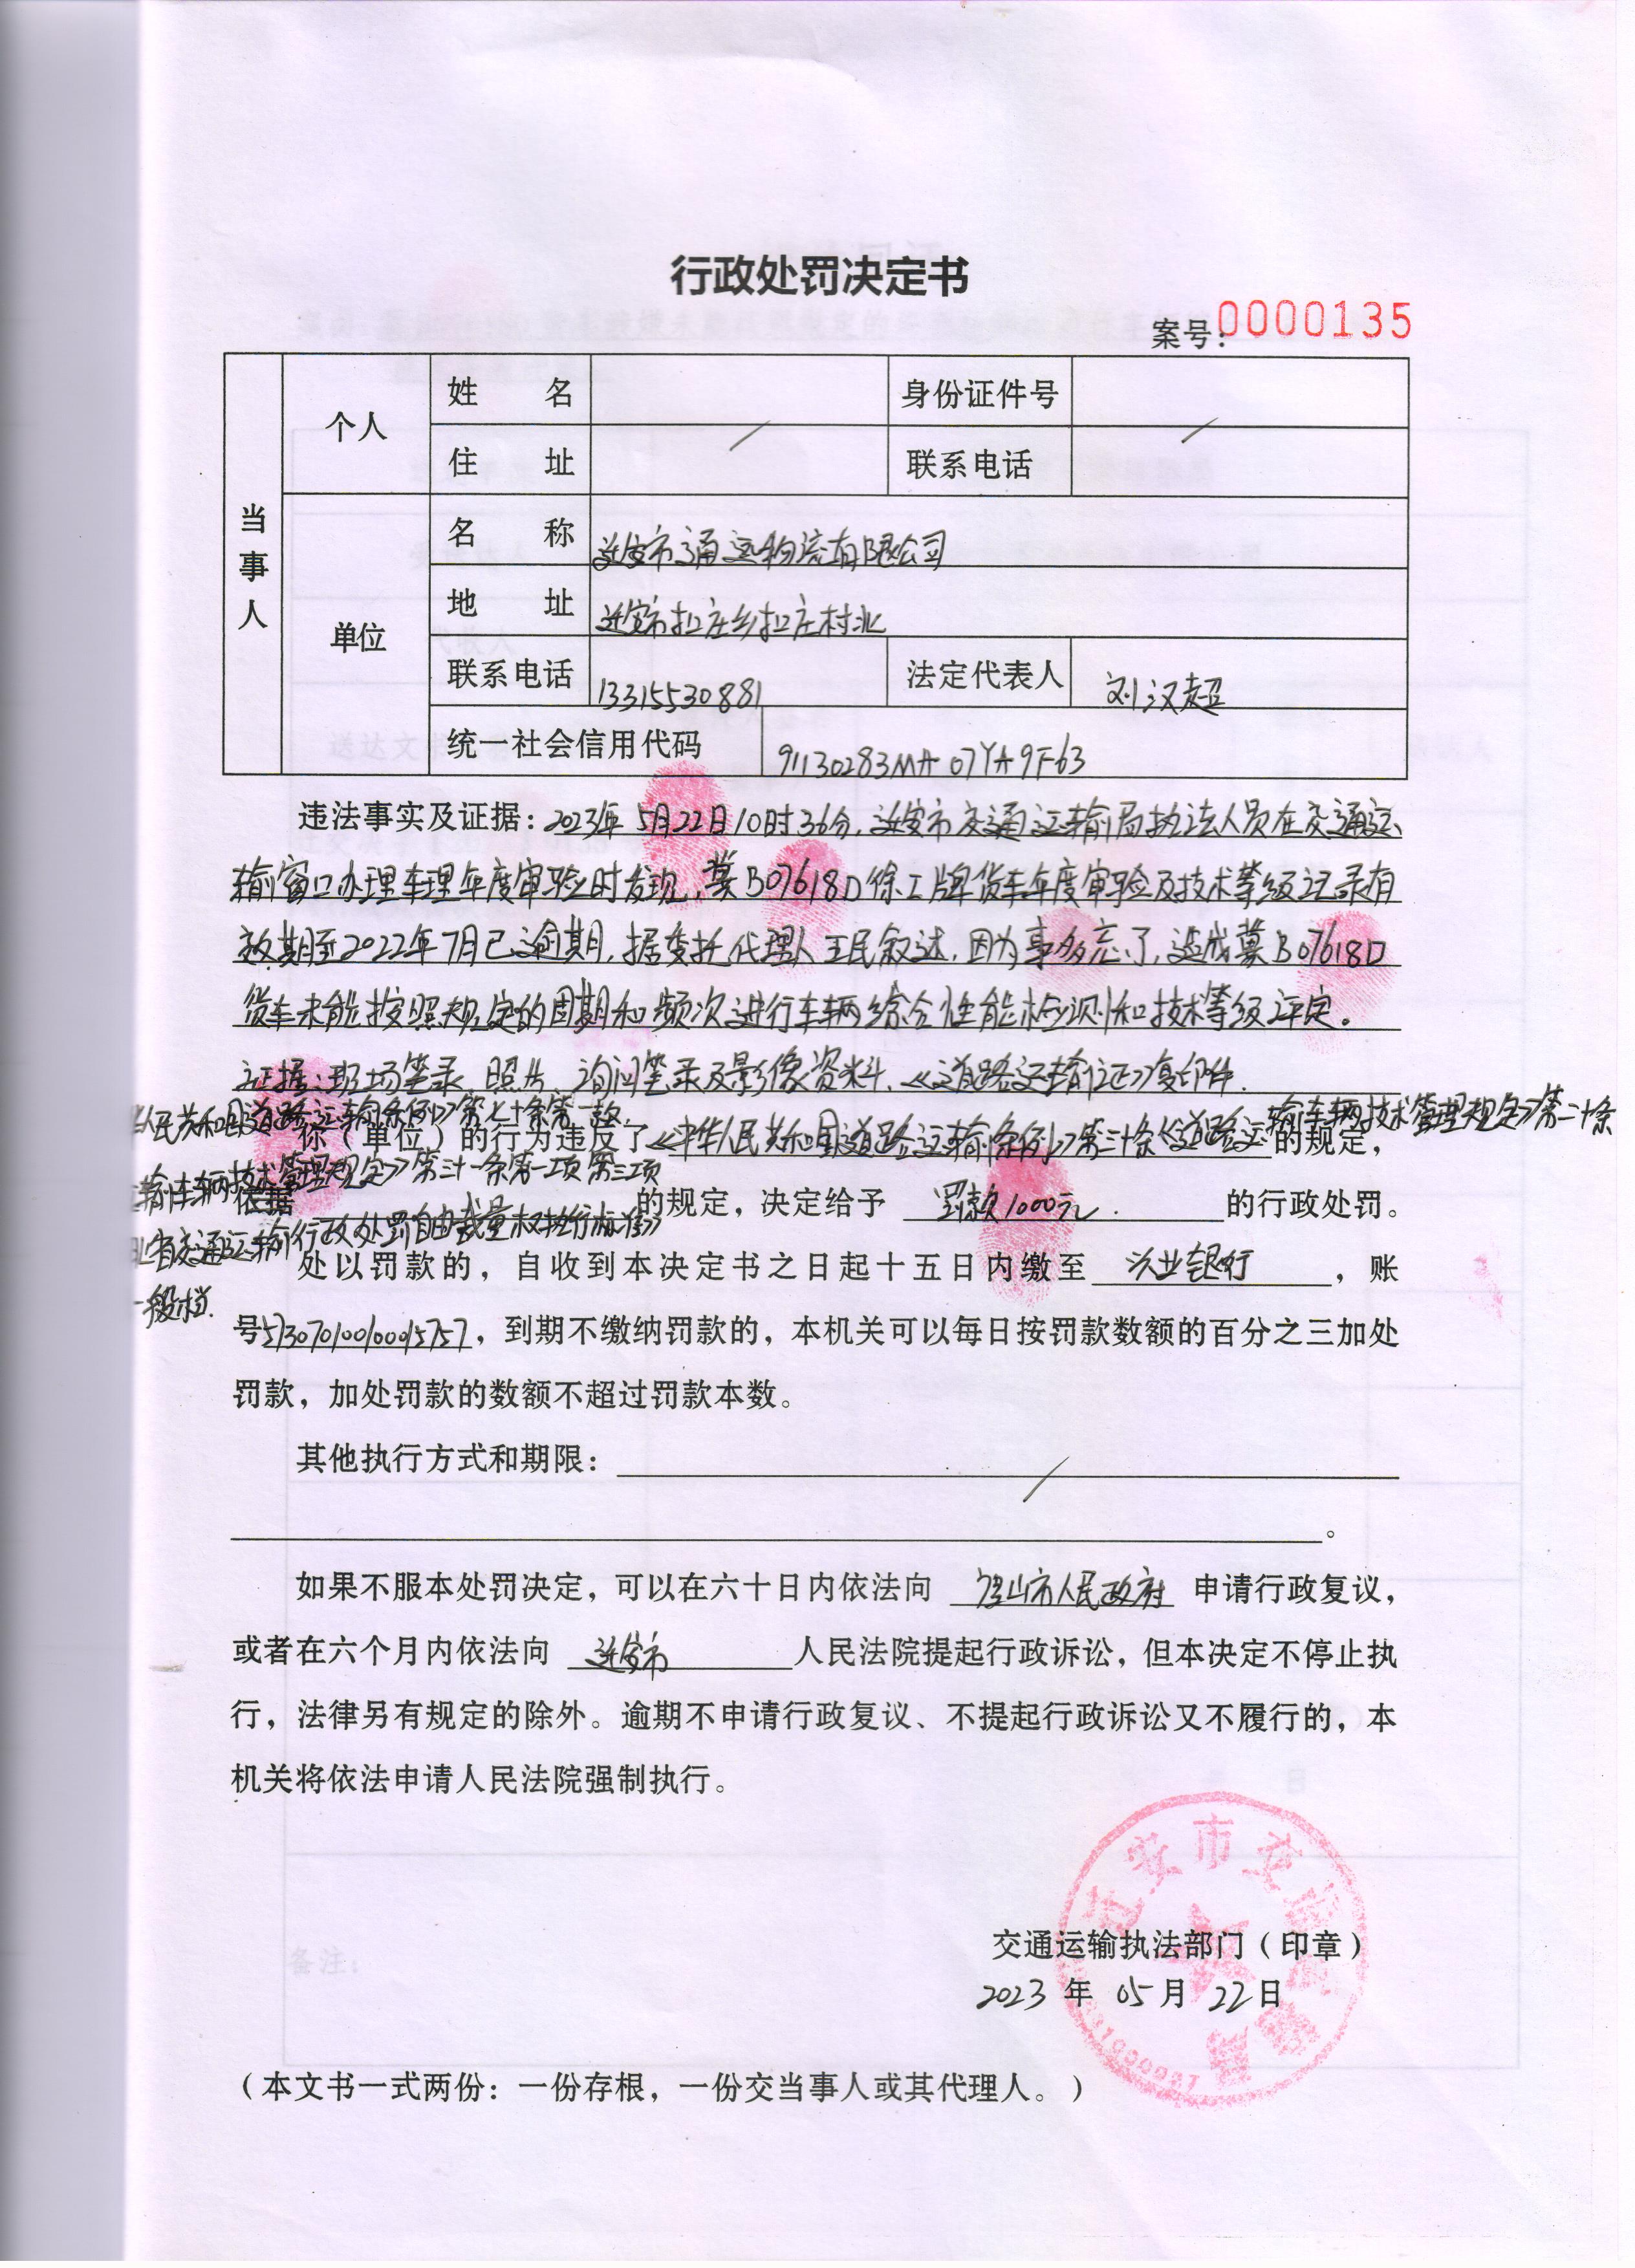 行政处罚决定书
案号：0000135
当事人
个人
姓 名
身份证件号
住 址
联系电话
单位
名 称 迁安市通远物流有限公司
地 址 迁安市扣庄乡扣庄村北
联系电话 13315530881 法定代表人 刘汉超
统一社会信用代码 91130283MA07YA9F63
违法事实及证据：2023年5月22日10时36分，迁安市交通运输局执法人员在交通运
输窗口办理车理年度审验时发现，冀B07618D徐工牌货车年度审验及技术等级记录有
效期至2022年7月已逾期，据委托代理人王民叙述，因为事多忘了，造成冀B07618D
货车未能按照规定的周期和频次进行车辆综合性能检测和技术等级评定。
证据：现场笔录、照片、询问笔录及影像资料、《道路运输证》复印件.
你（单位）的行为违反了《中华人民共和国道路运输条例》第三十条《道路运输车辆技术管理规定》第二十条的规定，
依据
人民共和国道路运输条例》第七十条第一款、
输车辆技术管理规定》第三十一条第一项第三项
省交通运输行政处罚自由裁量权执行标准》
一般档.
的规定，决定给予 罚款1000元. 的行政处罚。
处以罚款的，自收到本决定书之日起十五日内缴至 兴业银行 ，账
号573070100100015757，到期不缴纳罚款的，本机关可以每日按罚款数额的百分之三加处
罚款，加处罚款的数额不超过罚款本数。
其他执行方式和期限： /
。
如果不服本处罚决定，可以在六十日内依法向 唐山市人民政府 申请行政复议，
或者在六个月内依法向 迁安市 人民法院提起行政诉讼，但本决定不停止执
行，法律另有规定的除外。逾期不申请行政复议、不提起行政诉讼又不履行的，本
机关将依法申请人民法院强制执行。
交通运输执法部门（印章）
2023 年 05 月 22 日
（本文书一式两份：一份存根，一份交当事人或其代理人。）